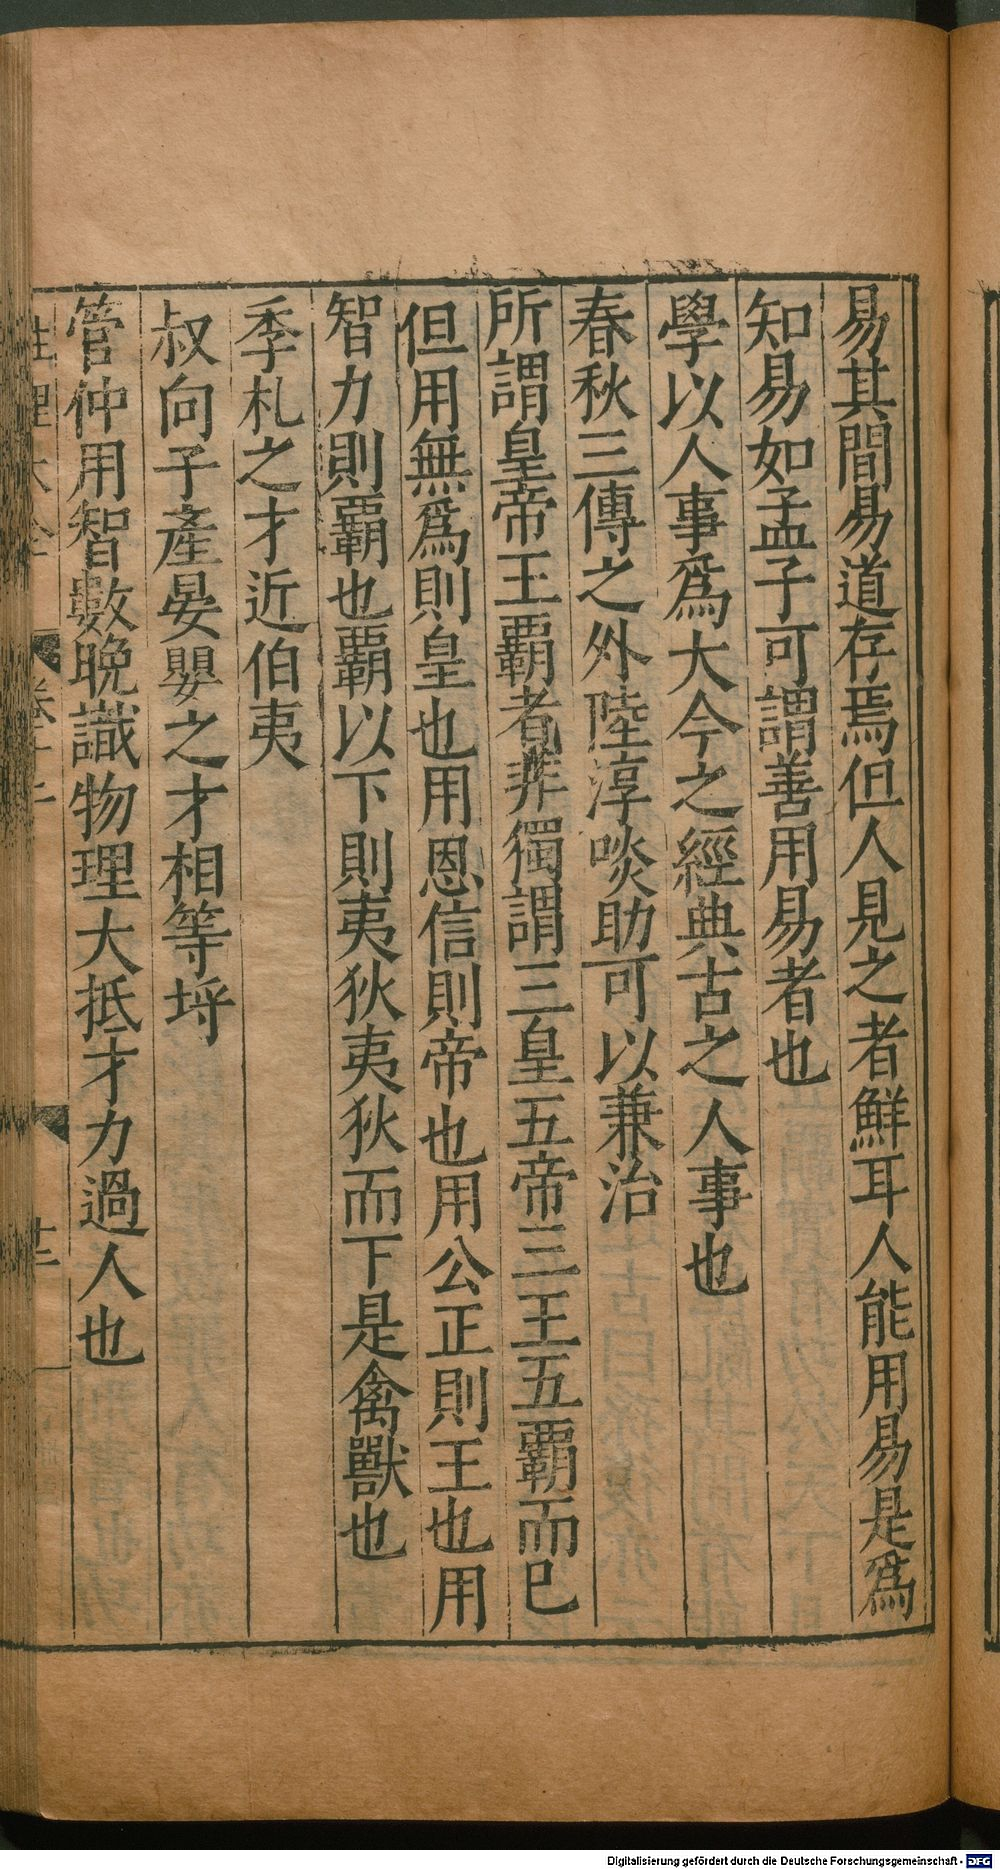 易其間易道存焉但人見之者鮮耳人能用易是爲
知易如孟子可謂善用易者也
學以人事爲大今之經典古之人事也
春秋三傳之外陸淳啖助可以兼治
所謂皇帝王覇者非獨謂三皇五帝三王五覇而已
但用無爲則皇也用恩信則帝也用公正則王也用
智力則覇也覇以下則夷狄夷狄而下是禽獸也
季札之才近伯夷
叔向子產晏嬰之才相等埒
管仲用智數晚識物理大抵才力過人也
性理大全
卷十二
廿二
Digitalisierung gefördert durch die Deutsche Forschungsgemeinschaft - DFG